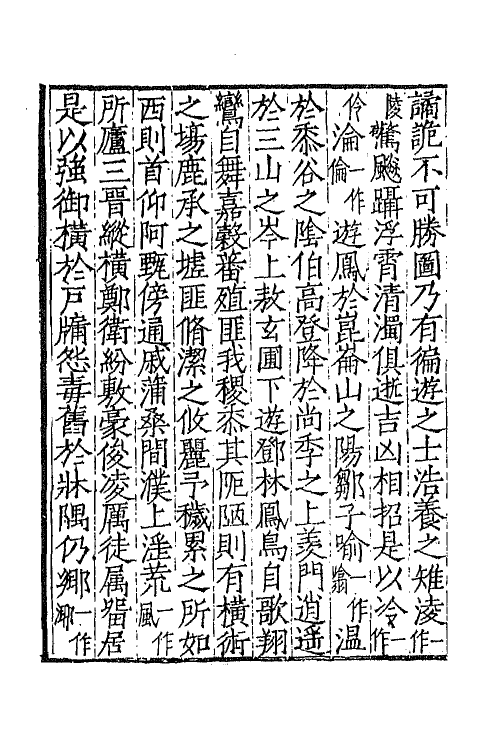 譎詭不可勝圖乃有徧遊之士浩養之雉凌一作
陵驚飈躡浮霄清濁俱逝吉凶相招是以冷一作
伶淪一作倫遊鳳於崑崙山之陽鄒子喻一作噏溫
於黍谷之陰伯高登降於尚季之上羨門逍遙
於三山之岑上敖玄圃下遊鄧林鳳鳥自歌翔
鸞自舞嘉穀蕃殖匪我稷黍其阨陋則有橫術
之場鹿承之墟匪脩潔之攸麗予穢累之所如
西則首仰阿甄傍通戚蒲桑間濮上淫荒一作風
所廬三晉縱橫鄭衛紛敷豪俊凌厲徒属留居
是以強御橫於戶牖怨毒舊於牀隅仍鄉一作